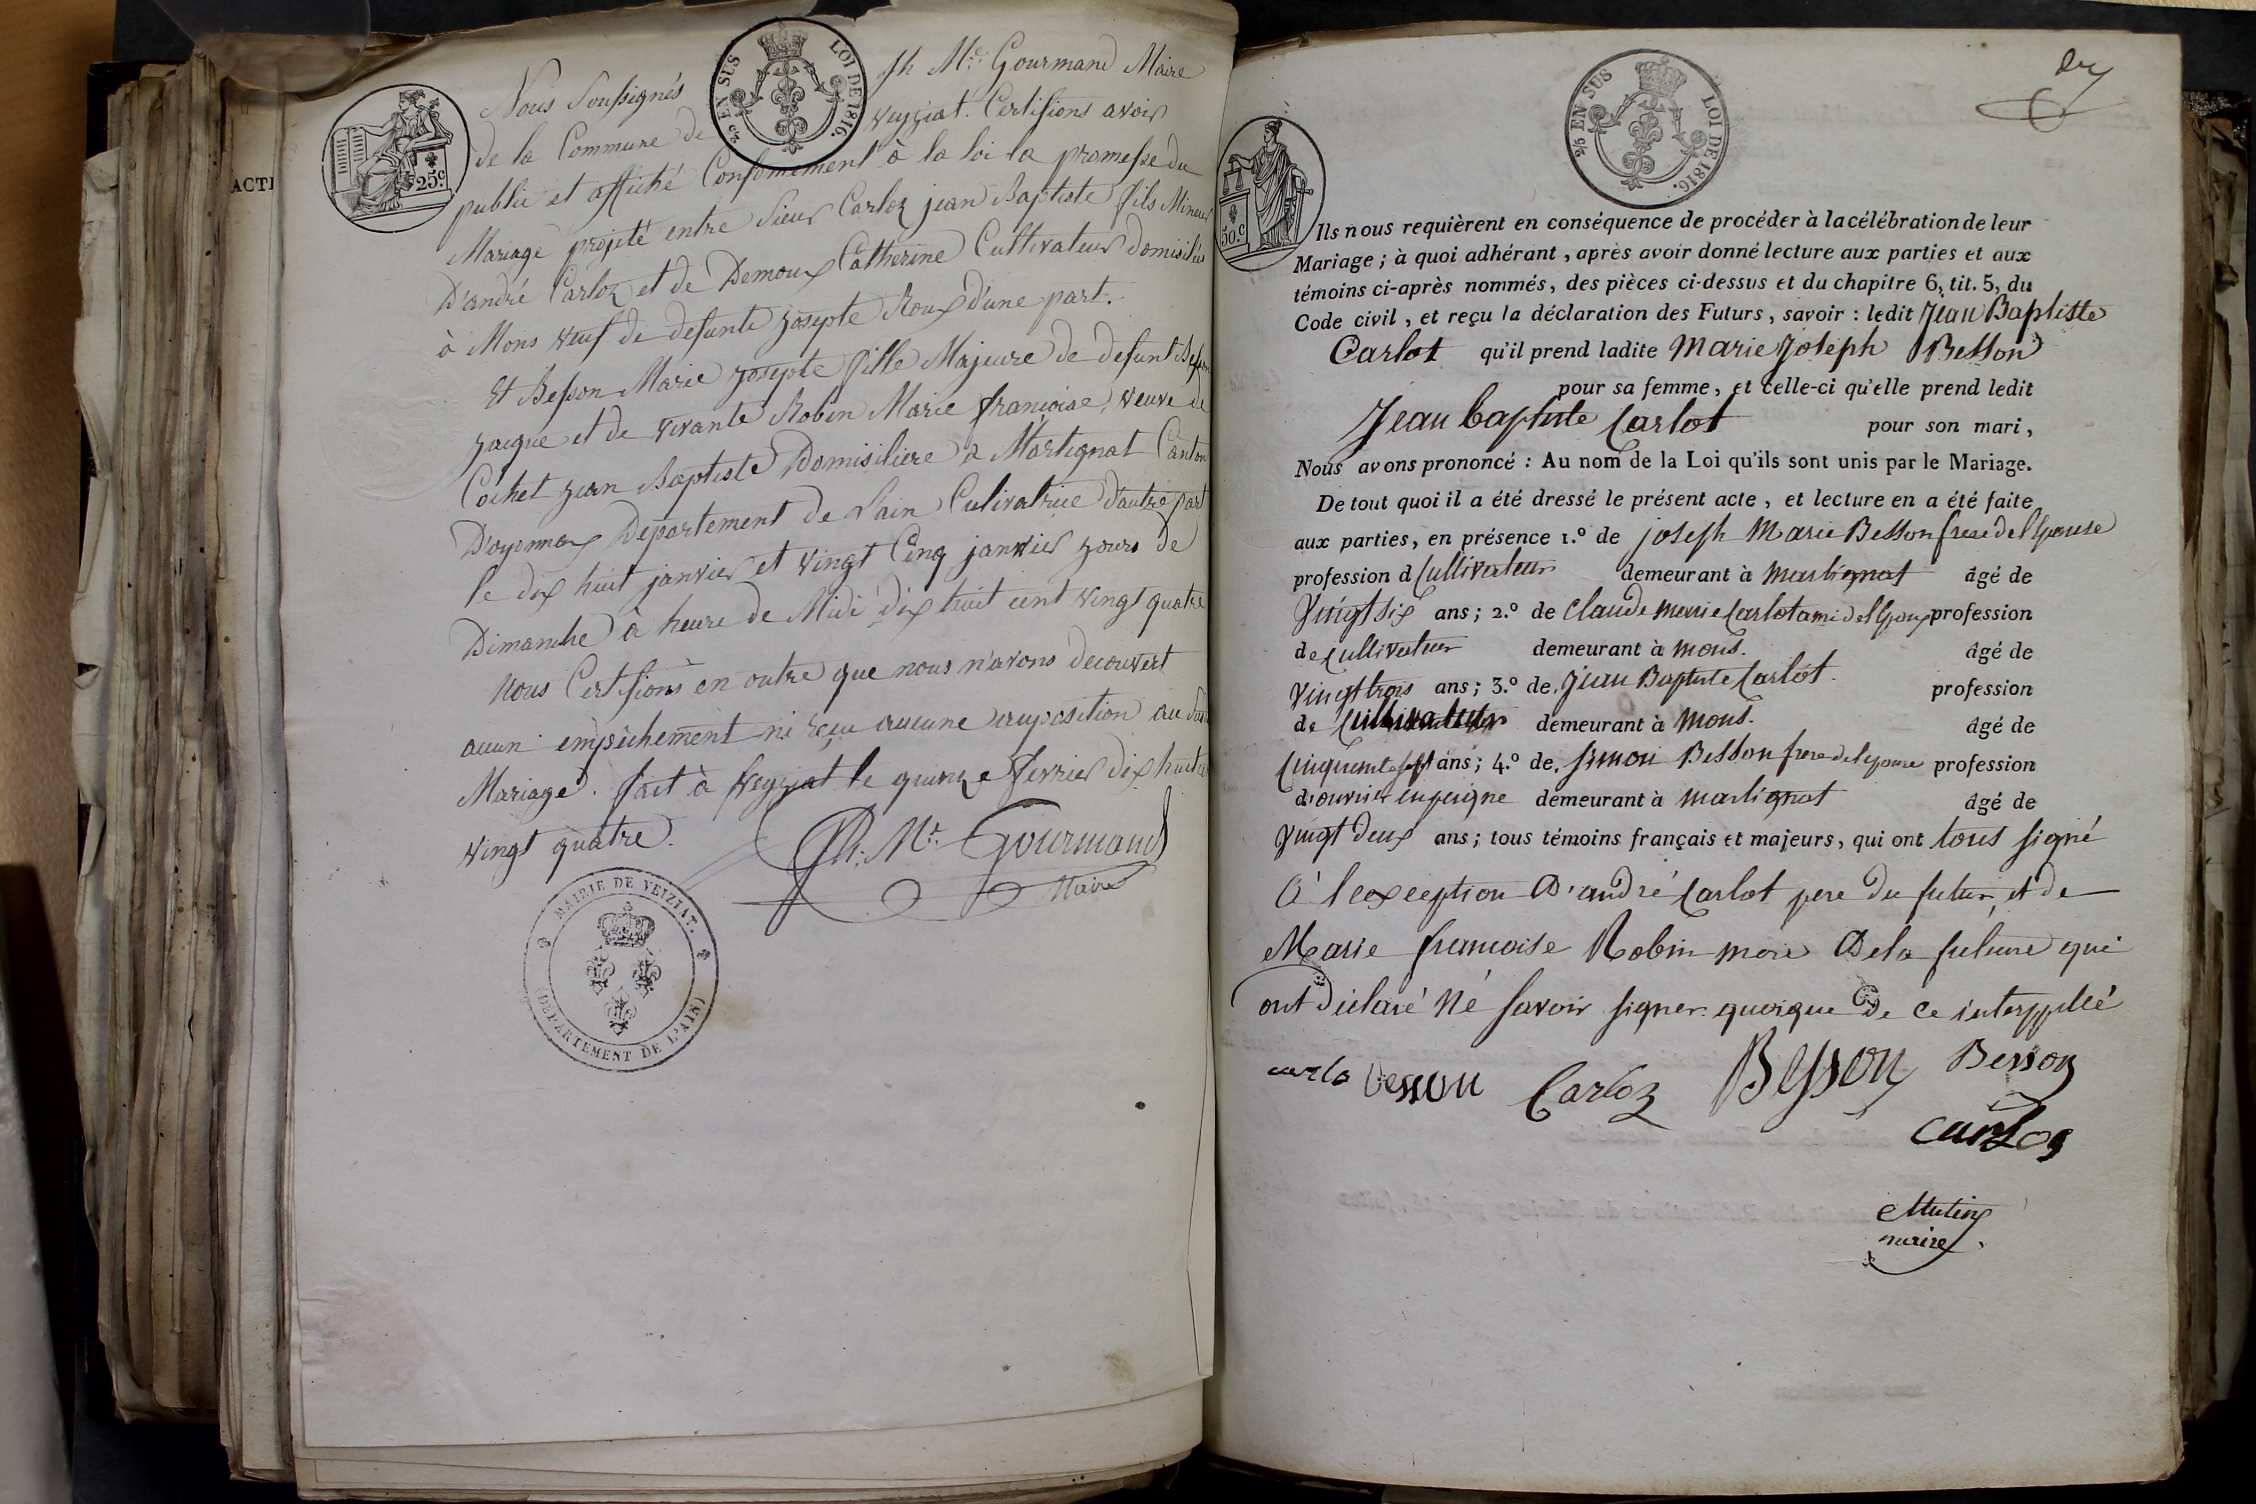 ACTE
25 c
2/5 EN SUS LOI DE 1816.
Nous Soussignés Jh Mie Gourmand Maire
de la Commune de veyziat. Certifions avoir
publié et affiché Conformement à la loi la promesse du
Mariage projeté entre Sieur Carloz jean Baptiste fils Mineur
D'andré Carloz et de Demoux Catherine Cultivateur domisiliés
à Mons veuf de defunte Josepte Roux d'une part.
Et Besson Marie Josepte fille Majeure de defunt Besson
Jacque et de vivante Robin Marie françoise, veuve de
Cochet jean Baptiste Domisiliere à Martignat Canton
D'oyonnax Departement de Lain Culivatrice d'autre part
le dix huit janvier et vingt Cinq janvier jours de
Dimanche à heure de Midi dix huit cent vingt quatre
Nous Certifions en outre que nous n'avons decouvert
aucun empêchement ni reçu aucune oposition au dit
Mariage. fait à Veyziat le quinze fevrier dix huit cent
vingt quatre.
Jh. Mie Gourmand
Maire
MAIRIE DE VEIZIAT.
(DÉPARTEMENT DE L'AIN)
2/5 EN SUS LOI DE 1816.
50.c
Ils nous requièrent en conséquence de procéder à la célébration de leur
Mariage ; à quoi adhérant , après avoir donné lecture aux parties et aux
témoins ci-après nommés, des pièces ci-dessus et du chapitre 6, tit. 5, du
Code civil , et reçu la déclaration des Futurs, savoir : ledit Jean Baptiste
Carlot qu'il prend ladite Marie Joseph Besson
pour sa femme, et celle-ci qu'elle prend ledit
Jean baptiste Carlot pour son mari,
Nous avons prononcé : Au nom de la Loi qu'ils sont unis par le Mariage.
De tout quoi il a été dressé le présent acte , et lecture en a été faite
aux parties, en présence 1.º de joseph Marie Besson frere de l'épouse
profession d Cultivateur demeurant à martignat âgé de
Vingt six ans ; 2.º de Claude marie Carlot ami de l'Epoux profession
de Cultivateur demeurant à mons. âgé de
vingt trois ans ; 3.º de Jean Baptiste Carlot. profession
de Cultivateur demeurant à mons. âgé de
Cinquante sept ans ; 4.º de Simon Besson frere de l'epouse profession
d'ouvrier en peigne demeurant à martignat âgé de
Vingt deux ans ; tous témoins français et majeurs, qui ont tous signé
à l'exception D'andré Carlot pere du futur, et de
Marie francoise Robin mere De la future qui
ont déclaré Né savoir signer quoique De ce interppellé
carlo besson Carloz Besson Besson
Carloz
Mutin
maire